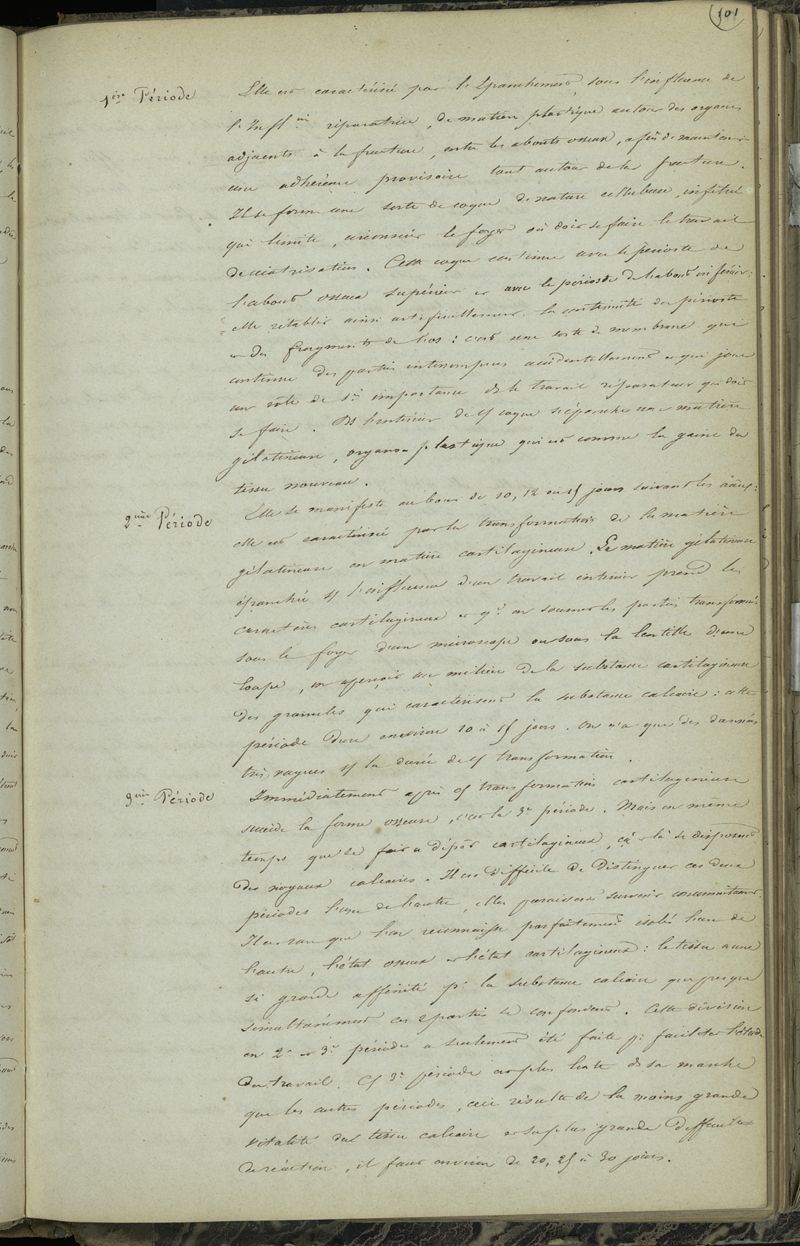 101
1ère Période
Elle est caractérisé par l'épanchement, sous l'influence de
l'Infl on réparatrice, de matière plastique autour des organes
adjacents à la fracture, entre les abouts osseux, afin de maintenir
une adhérence provisoire tout autour de la fracture.
Il se forme une sorte de coque de nature celluleuse,
qui limite, circonscrit le foyer où doit se faire le travail
de cicatrisation. Cette coque continue avec le périoste de
l'about osseux supérieur et avec le périoste de l'about inférieur:
elle rétablit ainsi artificiellement la continuité du périoste
et des fragments de l'os: c'est une sorte de membrane qui
continue des parties interrompues accidentellement et qui joue
un rôle de 1re importance ds le travail réparateur qui doit
se faire. Ds l'intérieur de cette coque s'épanche une matière
gélatineuse, organo-plastique qui est comme la gaine du
tissu nouveau.
2ème Période
Elle se manifeste au bout de 10, 12 ou 15 jours suivant les
elle est caractérisé par la transformation de la matière
gélatineuse en matière cartilagineuse. La matière gélatineuse
épanchée ss l'influence d'un travail intérieur prend les
caractères cartilagineux et qd on soumet les parties transformées
sous le foyer d'un microscope ou sous la lentille d'une
loupe, on aperçoit au milieu de la substance cartilagineuse
des granules qui caractérisent la substance calcaire: cette
période dure environ 10 à 15 jours. On n'a que des données
très vagues sr la durée de cette transformation.
3ème Période
Immédiatement après cette transformation cartilagineuse
succède la forme osseuse, c'est la 3e période. Mais en même
temps que se fait ce dépôt cartilagineux, çà et là se disposent
des noyaux calcaires. Il est difficile de distinguer ces deux
périodes l'une de l'autre, elles paraissent survenir
Il est rare que l'on reconnaisse parfaitement isolé l'un de
l'autre, l'état osseux et l'état cartilagineux: le tissu a une
si grande affinité pr la substance calcaire que presque
simultanément ces 2 parties se confondent. Cette division
en 2e et 3e période a seulement été faite pr faciliter l'étude
du travail. Cette 3e période est plus lente ds sa marche
que les autres périodes, ceci résulte de la moins grande
vitalité du tissu calcaire et sa plus grande difficulté
de réaction, il faut environ de 20, 25 à 30 jours.